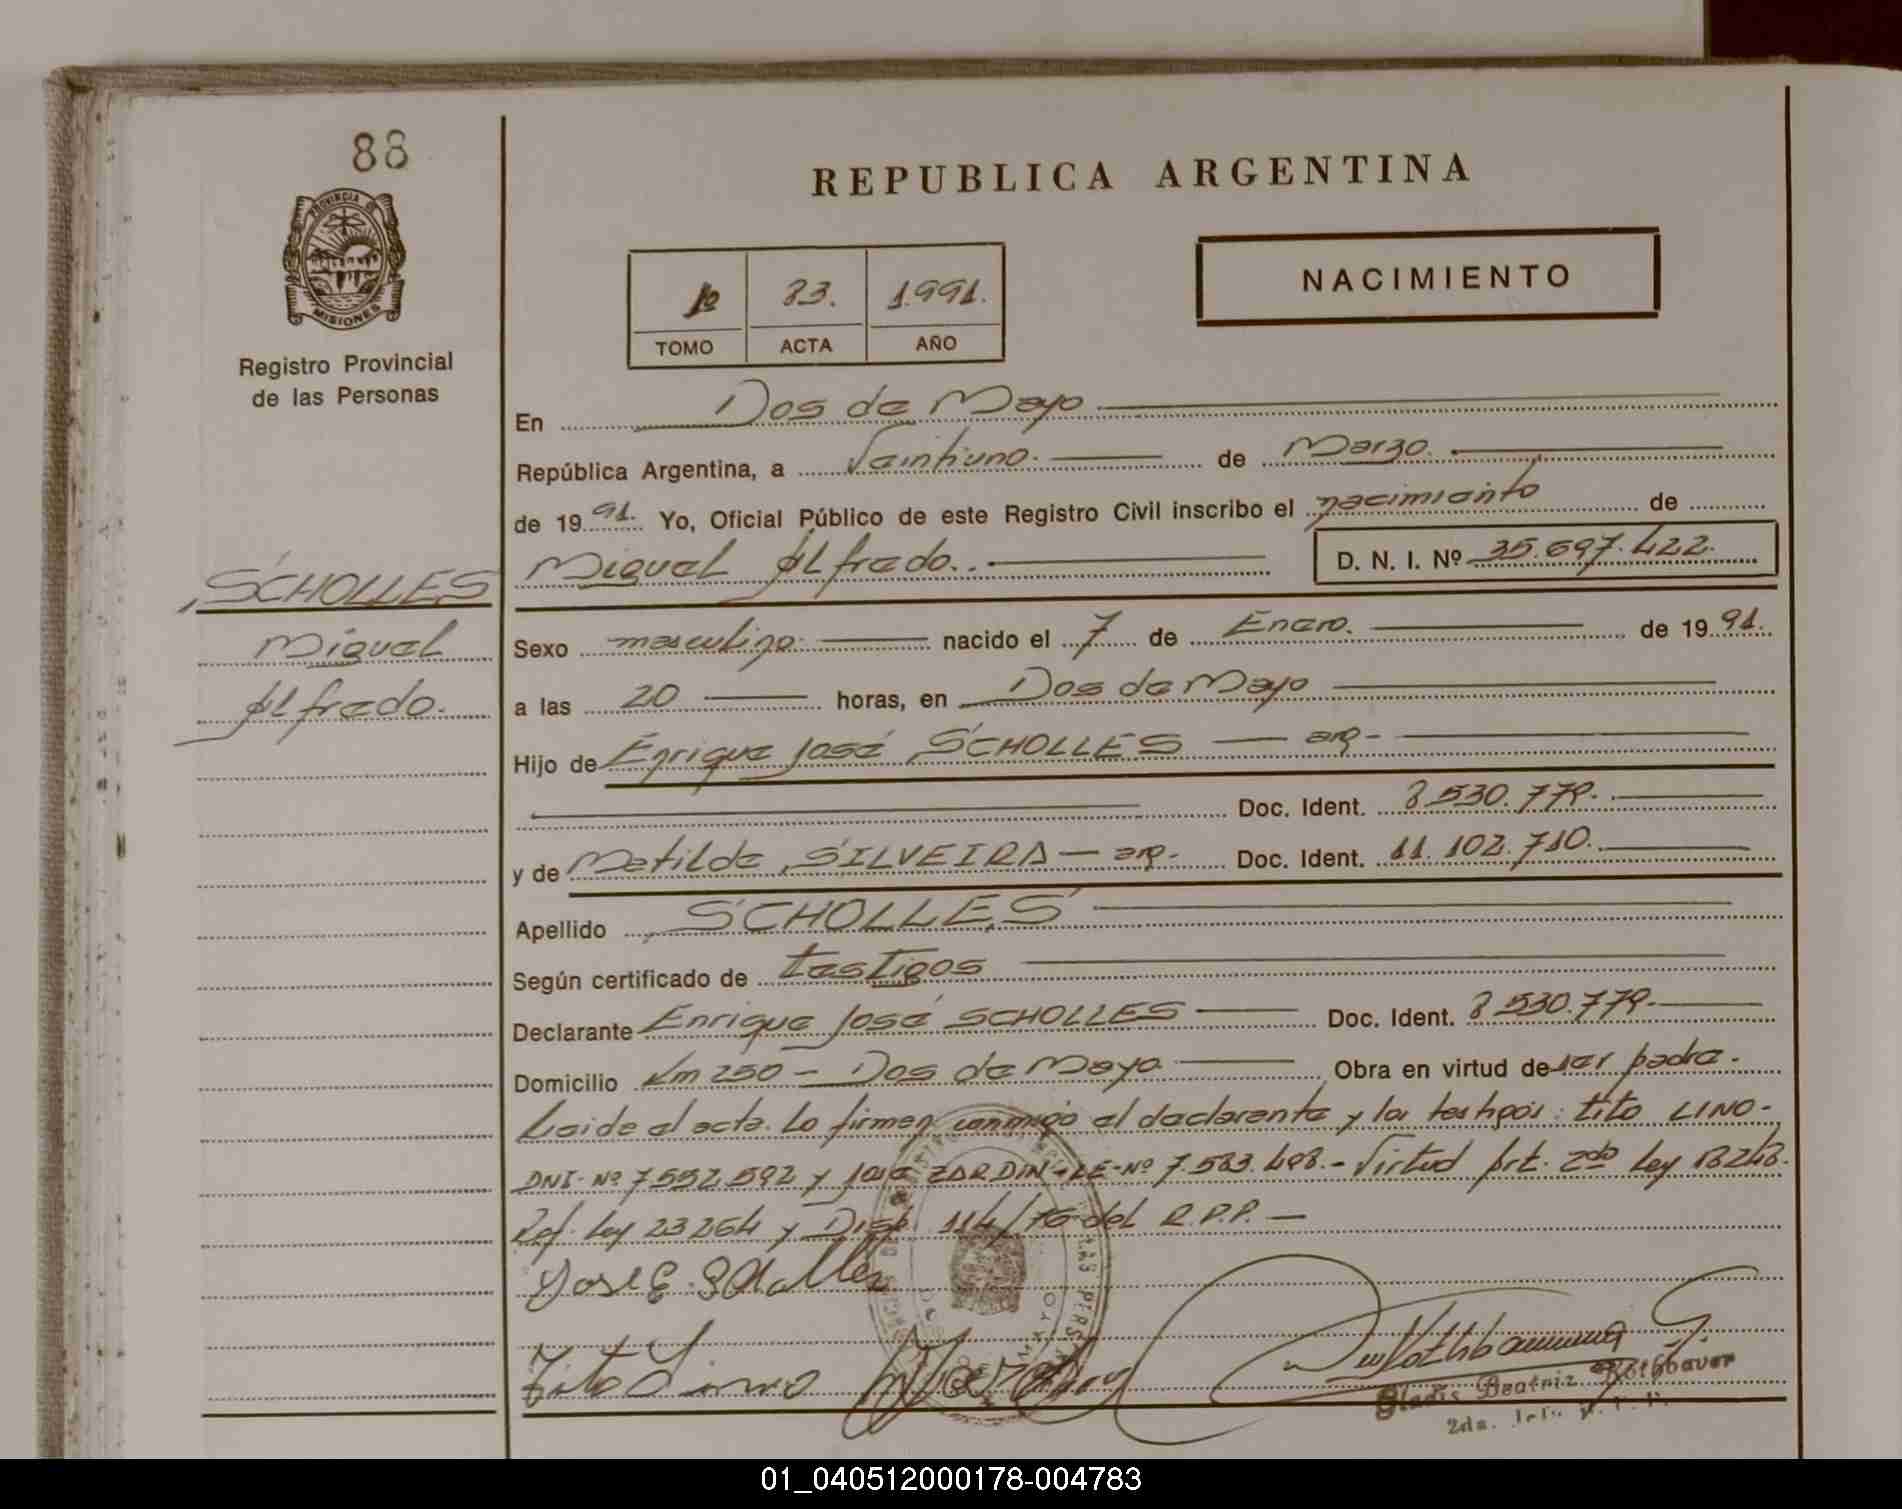 88
PROVINCIA DE
MISIONES
Registro Provincial
de las Personas
REPUBLICA ARGENTINA
1º 83. 1.991.
TOMO ACTA AÑO
NACIMIENTO
En Dos de Mayo
República Argentina, a Veintiuno. de Marzo.
de 19 91. Yo, Oficial Público de este Registro Civil inscribo el nacimiento de
Miguel Alfredo. D. N. I. Nº 35.697.422.
SCHOLLES
Miguel
Alfredo.
Sexo masculino. nacido el 7 de Enero. de 19 91.
a las 20 horas, en Dos de Mayo
Hijo de Enrique José SCHOLLES — arg-
Doc. Ident. 8.530.779.
y de Matilde SILVEIRA — arg. Doc. Ident. 11.102.710.
Apellido SCHOLLES
Según certificado de testigos
Declarante Enrique José SCHOLLES Doc. Ident. 8.530.779.
Domicilio Km 250 - Dos de Mayo Obra en virtud de ser padre.
Leide el acta. Lo firman conmigo el declarante y los testigos: Tito LINO-
DNI-Nº 7.552.592 y José ZARDIN-LE-Nº 7.583.498.- Virtud Art. 2do Ley 18248.
Ref. Ley 23264 y Disp. 114/76 del R.P.P. —
José E. Scholles
Tito Lino
Rothbauer G.
Gladis Beatriz Rothbauer
2da.
01_040512000178-004783